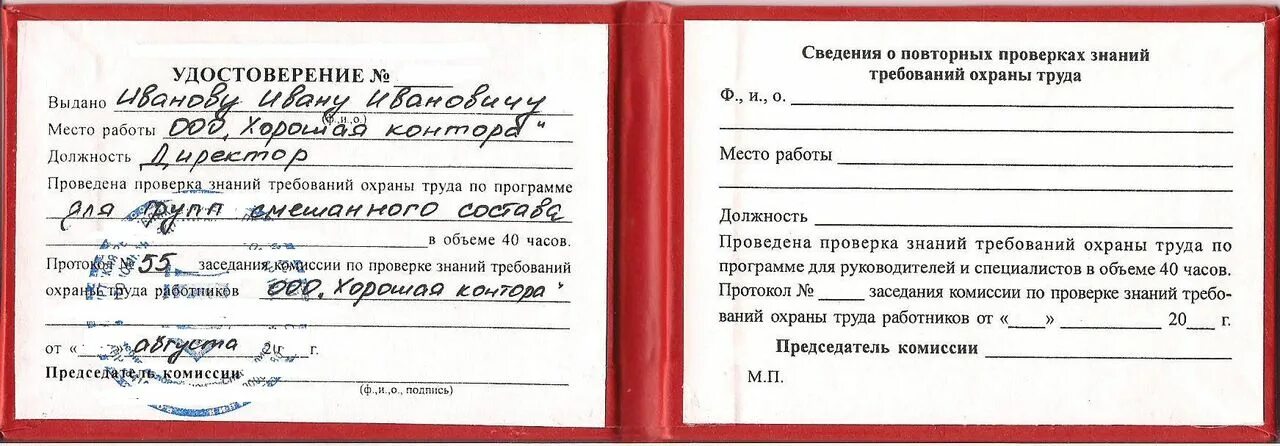 УДОСТОВЕРЕНИЕ №
Выдано Иванову Ивану Ивановичу
(ф.,и.,о.)
Место работы ООО „Хорошая контора"
Должность Директор
Проведена проверка знаний требований охраны труда по программе
для групп смешанного состава
в объеме 40 часов.
Протокол 55 заседания комиссии по проверке знаний требований
охраны труда работников ООО „Хорошая контора"
от « » августа 20 г.
Председатель комиссии
(ф.,и.,о., подпись)
Сведения о повторных проверках знаний
требований охраны труда
Ф., и., о.
Место работы
Должность
Проведена проверка знаний требований охраны труда по
программе для руководителей и специалистов в объеме 40 часов.
Протокол № заседания комиссии по проверке знаний требо-
ваний охраны труда работников от « » 20 г.
Председатель комиссии
М.П.